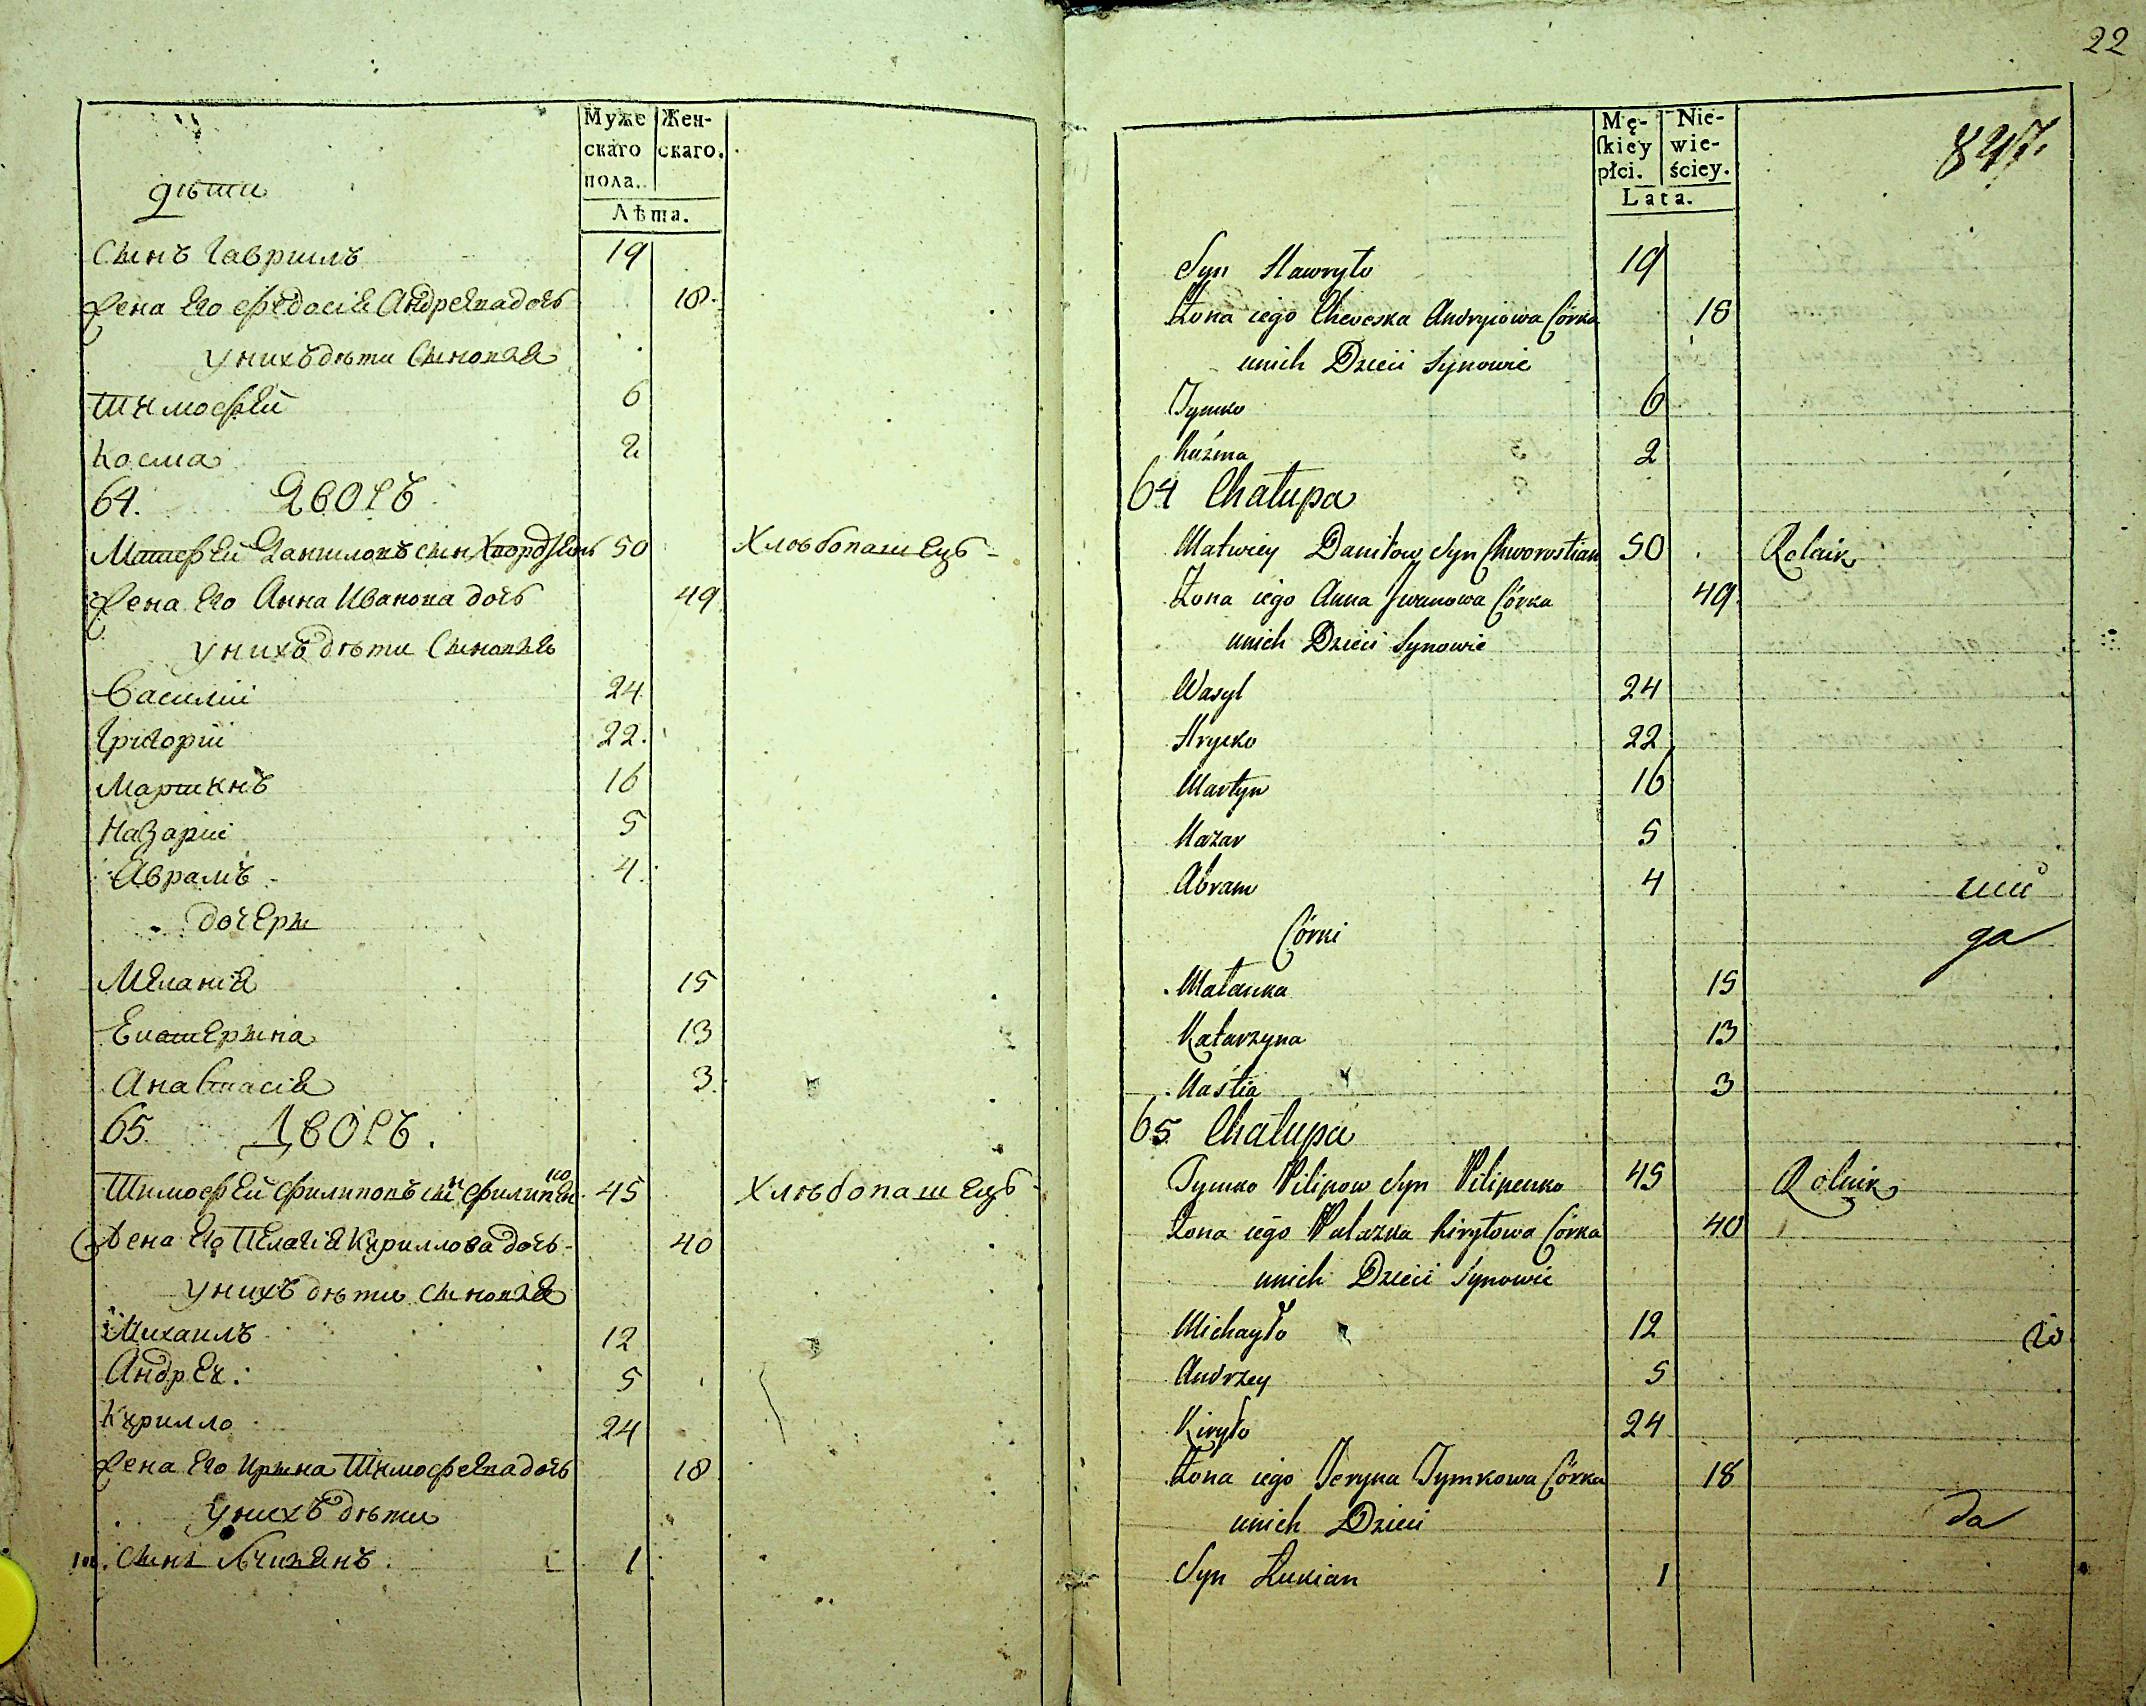 Муже Жен-
скаго скаго.
пола.
Лѣта.
дѣти
Сынъ Гавриилъ 19
Жена Его Федосія Андреева дочь 18
у нихъ дѣти Сыновья
Тимофей 6
Косма 2
64. Дворъ
Матфей Даниловъ сын 50 Хлѣбопашецъ
Жена Его Анна Иванова дочь 49
у нихъ дѣти Сыновья
Василій 24
Григорій 22.
Мартинъ 16
Назарій 5
Аврамъ 4.
дочери
Меланія 15
Екатерина 13
Анастасія 3.
65. Дворъ.
Тимофей Филиповъ сын Филипенко 45 Хлѣбопашецъ
Жена Его Пелагія Кириллова дочь 40
у нихъ дѣти сыновья
Михаилъ 12
Андрей. 5
Кирилло 24
Жена Его Ирина Тимофеева дочь 18
у нихъ дѣти
Сынъ Лукианъ. 1
22
Mę- Nie-
ſkiey wie-
płci. ściey.
Lata.
847.
Syn Hawryło 19
Żona iego Chweska Andryiowa Córka 18
unich Dzieci Synowie
Tymko 6
Kuźma 2
64 Chałupa
Matwiey Daniłow Syn Chworostian 50 Rolnik
Żona iego Anna Iwanowa Córka 49
unich Dzieci Synowie
Wasyl 24
Hrycko 22
Martyn 16
Nazar 5
Abram 4
Córki
Małanka 15
Katarzyna 13
Naśtia 3
65 Chałupa
Tymko Pilipow Syn Pilipenko 45 Rolnik
Żona iego Pałazka Kiryłowa Córka 40
unich Dzieci Synowie
Michayło 12
Andrzey 5
Kiryło 24
Żona iego Jeryna Tymkowa Córka 18
unich Dzieci
да
Syn Łukian 1